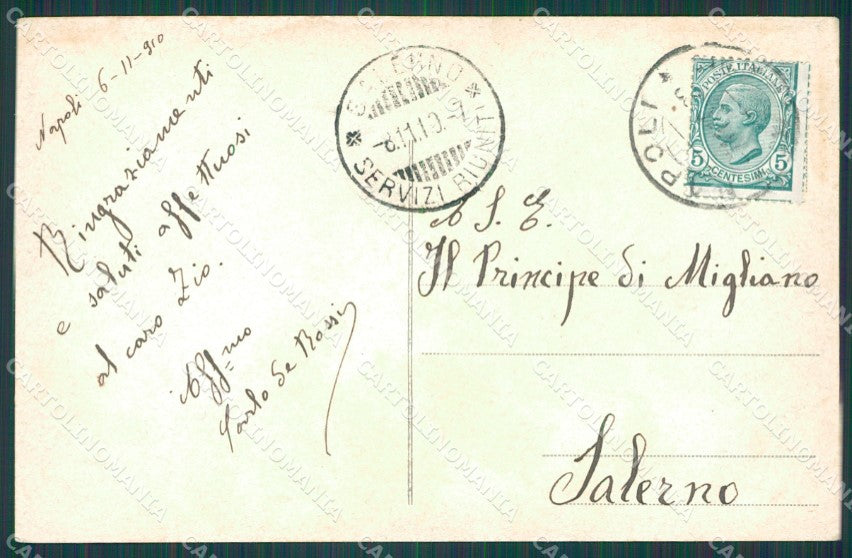 Napoli 6-11-910
Ringraziamenti
e saluti affettuosi
al caro Zio.
Aff=mo
Carlo de Rossi
SALERNO
8.11.10
SERVIZI RIUNITI
POSTE ITALIANE
5 5
CENTESIMI
A S. E.
Il Principe di Migliano
Salerno
CARTOLINOMANIA